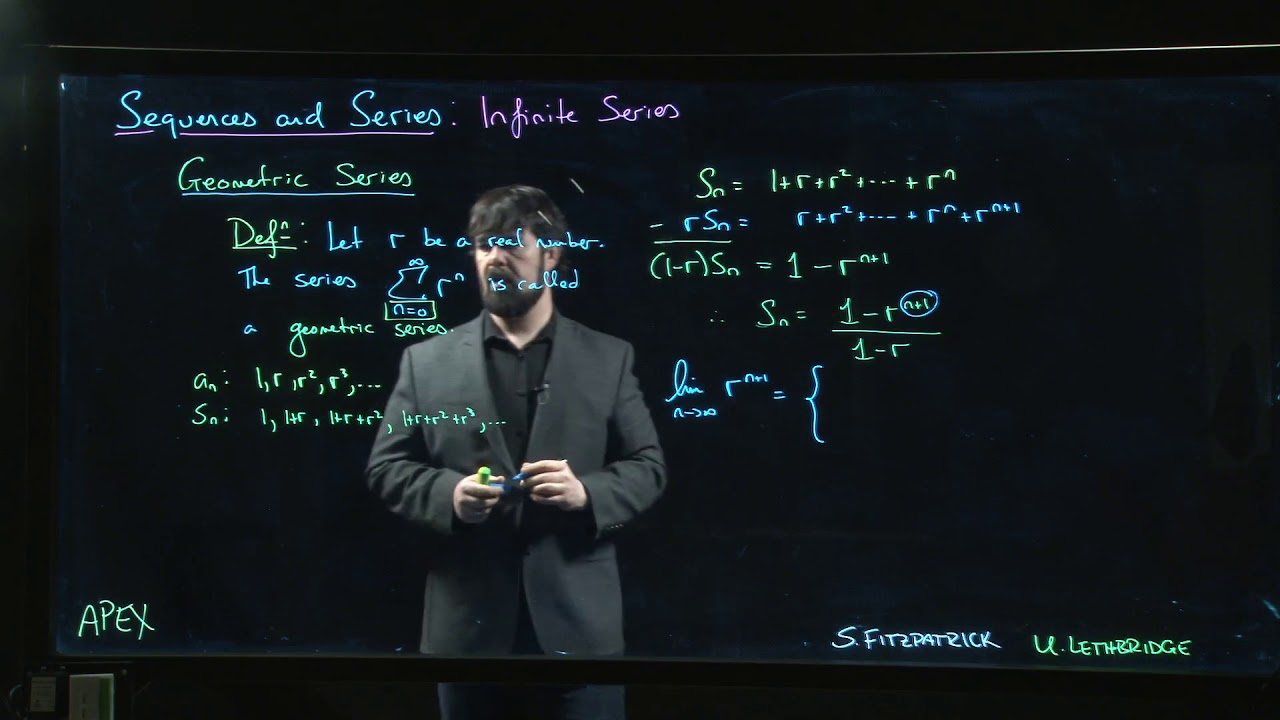 Sequences and Series: Infinite Series
Geometric Series
Defⁿ: Let r be a real number.
The series ∑_{n=0}^{∞} rⁿ is called
a geometric series.
aₙ: 1, r, r², r³, ...
Sₙ: 1, 1+r, 1+r+r², 1+r+r²+r³, ...
Sₙ = 1+r+r²+⋯+rⁿ
- rSₙ = r+r²+⋯+rⁿ+rⁿ⁺¹
(1-r)Sₙ = 1-rⁿ⁺¹
∴ Sₙ = (1-rⁿ⁺¹)/(1-r)
lim_{n→∞} rⁿ⁺¹ = {
APEX
S. FITZPATRICK U. LETHBRIDGE